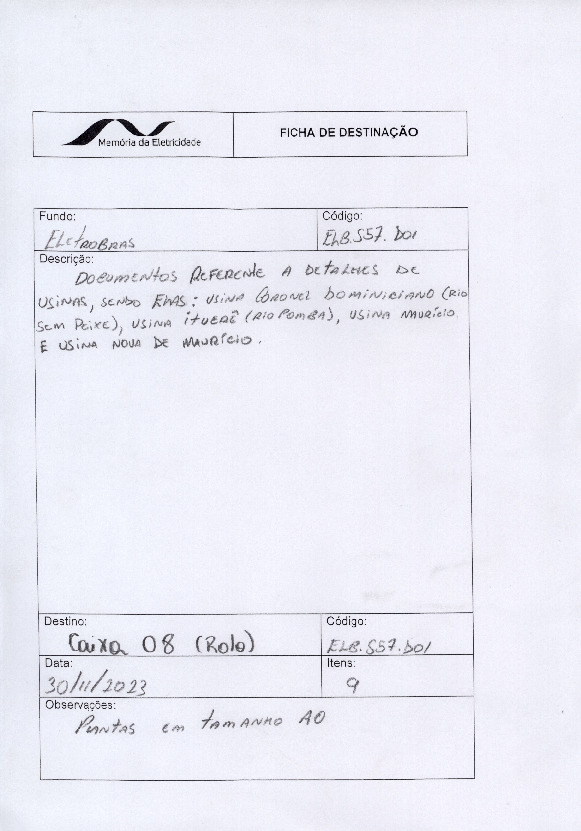 Memória da Eletricidade
FICHA DE DESTINAÇÃO
Fundo:
ELETROBRAS
Código:
ELB.S57.D01
Descrição:
DOCUMENTOS REFERENTE A DETALHES DE
USINAS, SENDO ELAS: USINA CORONEL DOMINICIANO (RIO
SEM PEIXE), USINA ITUERÊ (RIO POMBA), USINA MAURÍCIO
E USINA NOVA DE MAURÍCIO.
Destino:
Caixa 08 (Rolo)
Código:
ELB.S57.D01
Data:
30/11/2023
Itens:
9
Observações:
PLANTAS EM TAMANHO A0